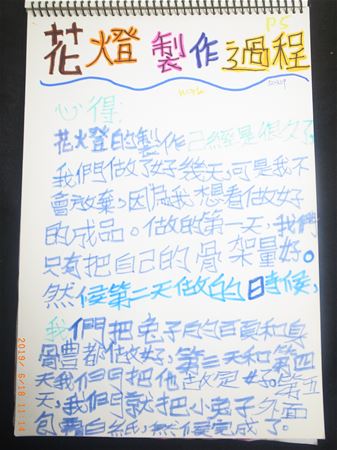 花燈製作過程
P5
心得:
花火登的製作已經是很久了,
我們做了好幾天,可是我不
會放棄,因為我想看做好
的成品。做的第一天,我們
只有把自己的骨架量好。
然侯第二天做的的時候,
我們把兔子的的頁和身
骨豊都做好,第三天和第四
天我們把他故定好。第五
天,我們就把小兔子外面
包覆白紙,然侯完成了。
2019/6/18 11:14